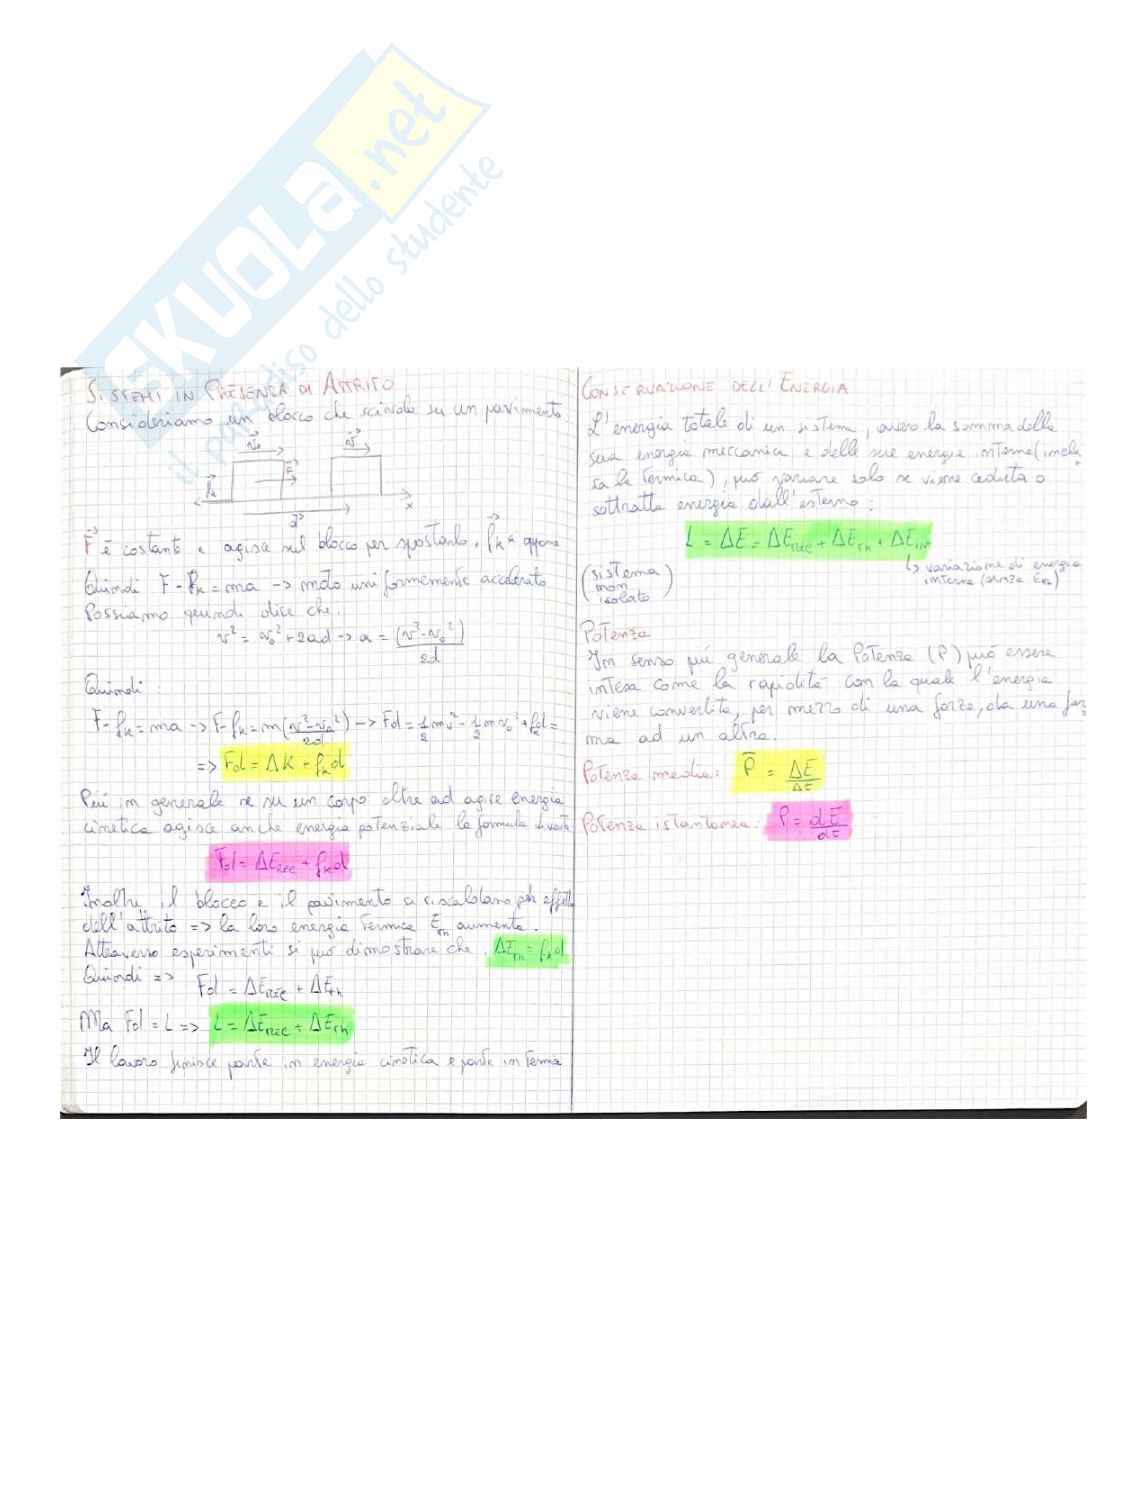 SKUOLA.net
il paradiso dello studente
SISTEMI IN PRESENZA DI ATTRITO
Consideriamo un blocco che scivola su un pavimento
v₀ v
F
fₖ
d x
F è costante e agisce sul blocco per spostarlo, fₖ si oppone
Quindi F - fₖ = ma -> moto uniformemente accelerato
Possiamo quindi dire che:
v² = v₀² + 2ad -> a = (v² - v₀²)/2d
Quindi
F - fₖ = ma -> F - fₖ = m(v² - v₀²)/2d -> Fd = 1/2 mv² - 1/2 mv₀² + fₖd =
=> Fd = ΔK + fₖd
Più in generale se su un corpo oltre ad agire energia
cinetica agisce anche energia potenziale la formula diventa
Fd = ΔEMEC + fₖd
Inoltre il blocco e il pavimento si riscaldano per effetto
dell'attrito => la loro energia termica Eth aumenta.
Attraverso esperimenti si può dimostrare che: ΔEth = fₖd
Quindi => Fd = ΔEMEC + ΔEth
Ma Fd = L => L = ΔEMEC + ΔEth
Il lavoro finisce parte in energia cinetica e parte in terma
CONSERVAZIONE DELL'ENERGIA
L'energia totale di un sistema, ovvero la somma della
sua energia meccanica e delle sue energie interne (inclu
sa la termica), può variare solo se viene ceduta o
sottratta energia dall'esterno:
L = ΔE = ΔEMEC + ΔEth + ΔEint
(sistema non isolato)
↳ variazione di energia
interna (senza Eth)
Potenza
In senso più generale la Potenza (P) può essere
intesa come la rapidità con la quale l'energia
viene convertita, per mezzo di una forza, da una for
ma ad un altra.
Potenza media: P̄ = ΔE/Δt
Potenza istantanea: P = dE/dt